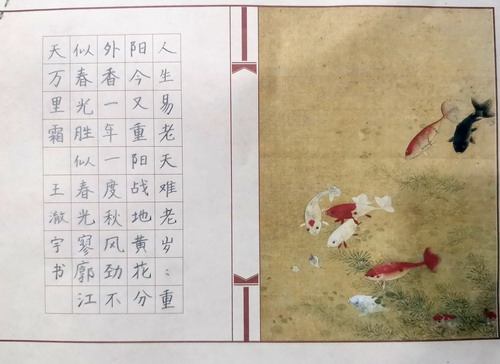 人生易老天难老岁:重
阳今又重阳战地黄花分
外香一年一度秋风劲不
似春光胜似春光寥廓江
天万里霜 王澈宇书